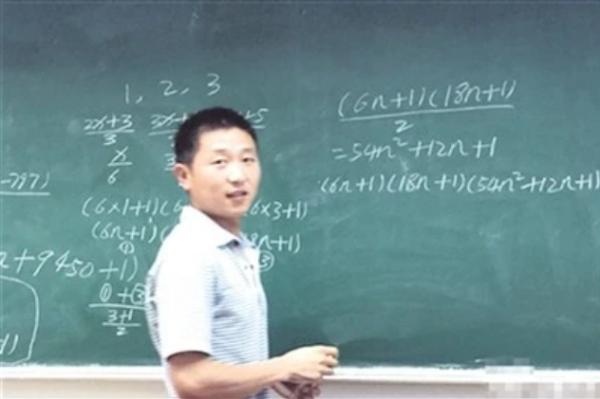 1, 2, 3
2x+3 3x+ +5
3 3
x
6
(6×1+1)(6 6×3+1)
(6n+1)( 8n+1)
① ③
-797)
n+9450+1)
①+③
3+1
2
1)
(6n+1)(18n+1)
2
=54n²+12n+1
(6n+1)(18n+1)(54n²+12n+1)